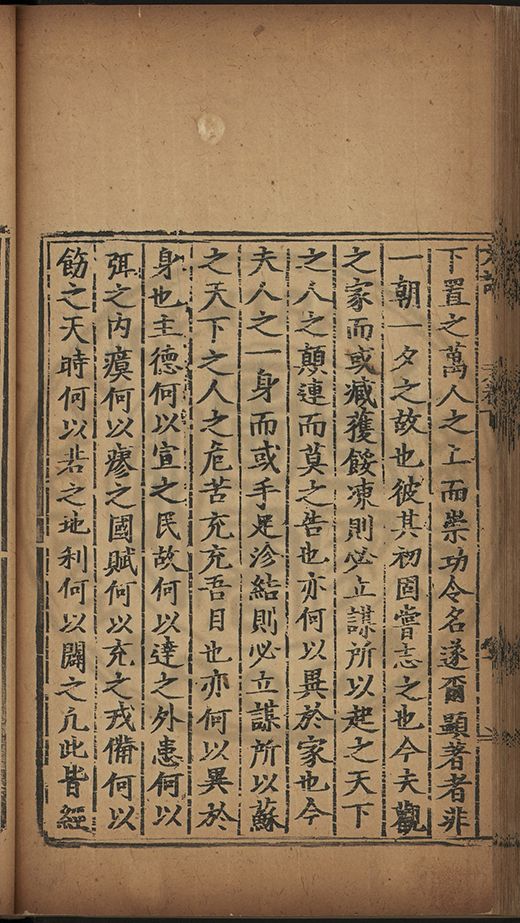 下置之萬人之上而崇功令名遂爾顯著者非
一朝一夕之故也彼其初固嘗志之也今夫觀
之家而或臧獲餒凍則必立謀所以起之天下
之人之顛連而莫之告也亦何以異於家也今
夫人之一身而或手足沴結則必立謀所以蘇
之天下之人之危苦充充吾目也亦何以異於
身也主德何以宣之民故何以達之外患何以
弭之内瘼何以瘳之國賦何以充之戎備何以
飭之天時何以若之地利何以闢之凢此皆經